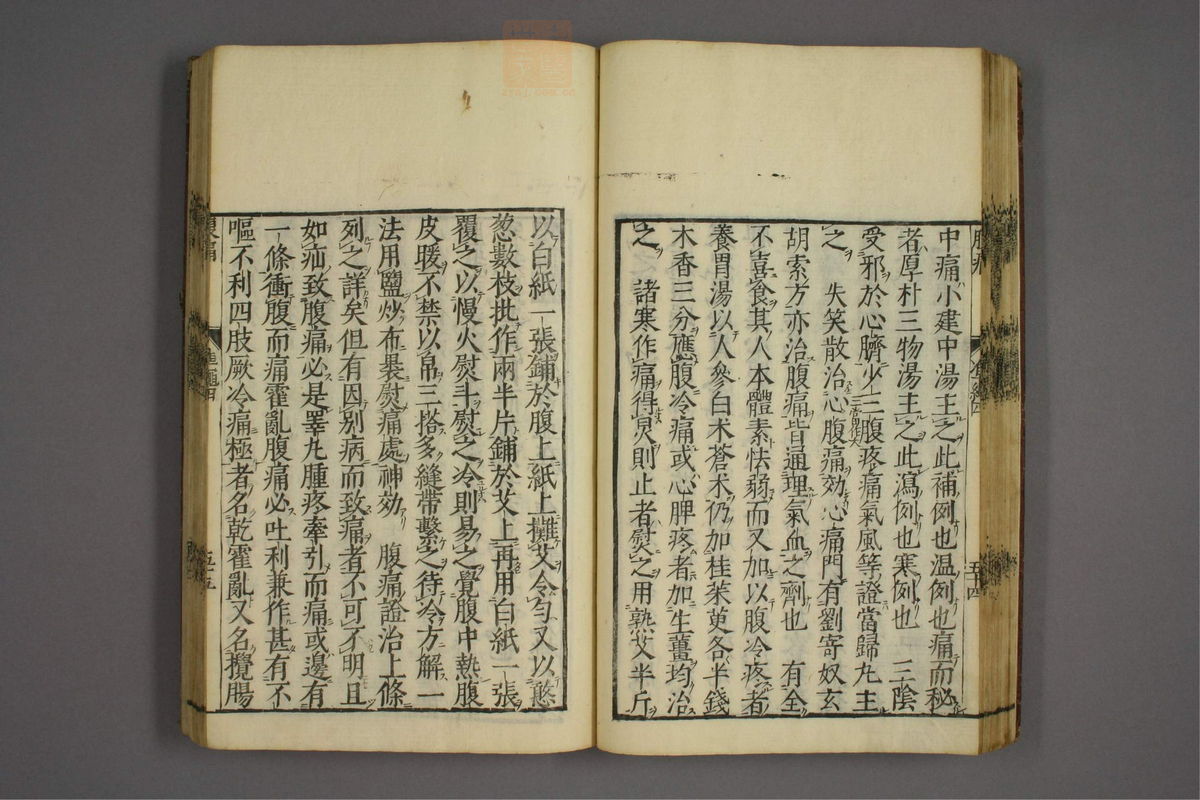 中痛小建中湯主之此補例也温例也痛而秘
者厚朴三物湯主之此瀉例也寒例也　三陰
受邪於心臍少三腹疼痛氣風等證當歸丸主
之　失笑散治心腹痛効心痛門有劉寄奴玄
胡索方亦治腹痛皆通理氣血之劑也　有全
不喜食其人本體素怯弱而又加以腹冷疼者
養胃湯以人參白朮蒼朮仍加桂茱萸各半錢
木香三分應腹冷痛或心脾疼者加生薑均治
之　諸寒作痛得炅則止者熨之用熟艾半斤
五十四
以白紙一張鋪於腹上紙上攤艾令勻又以憨
葱數枝批作兩半片鋪於艾上再用白紙一張
覆之以慢火熨斗熨之冷則易之覺腹中熱腹
皮暖不禁以帛三搭多縫帶繫之待冷方解一
法用鹽炒布裹熨痛處神効　腹痛證治上條
列之詳矣但有因別病而致痛者不可不明且
如疝致腹痛必是睪丸腫疼牽引而痛或邊有
一條衝腹而痛霍亂腹痛必吐利兼作甚有不
嘔不利四肢厥冷痛極者名乾霍亂又名攪腸
五十五